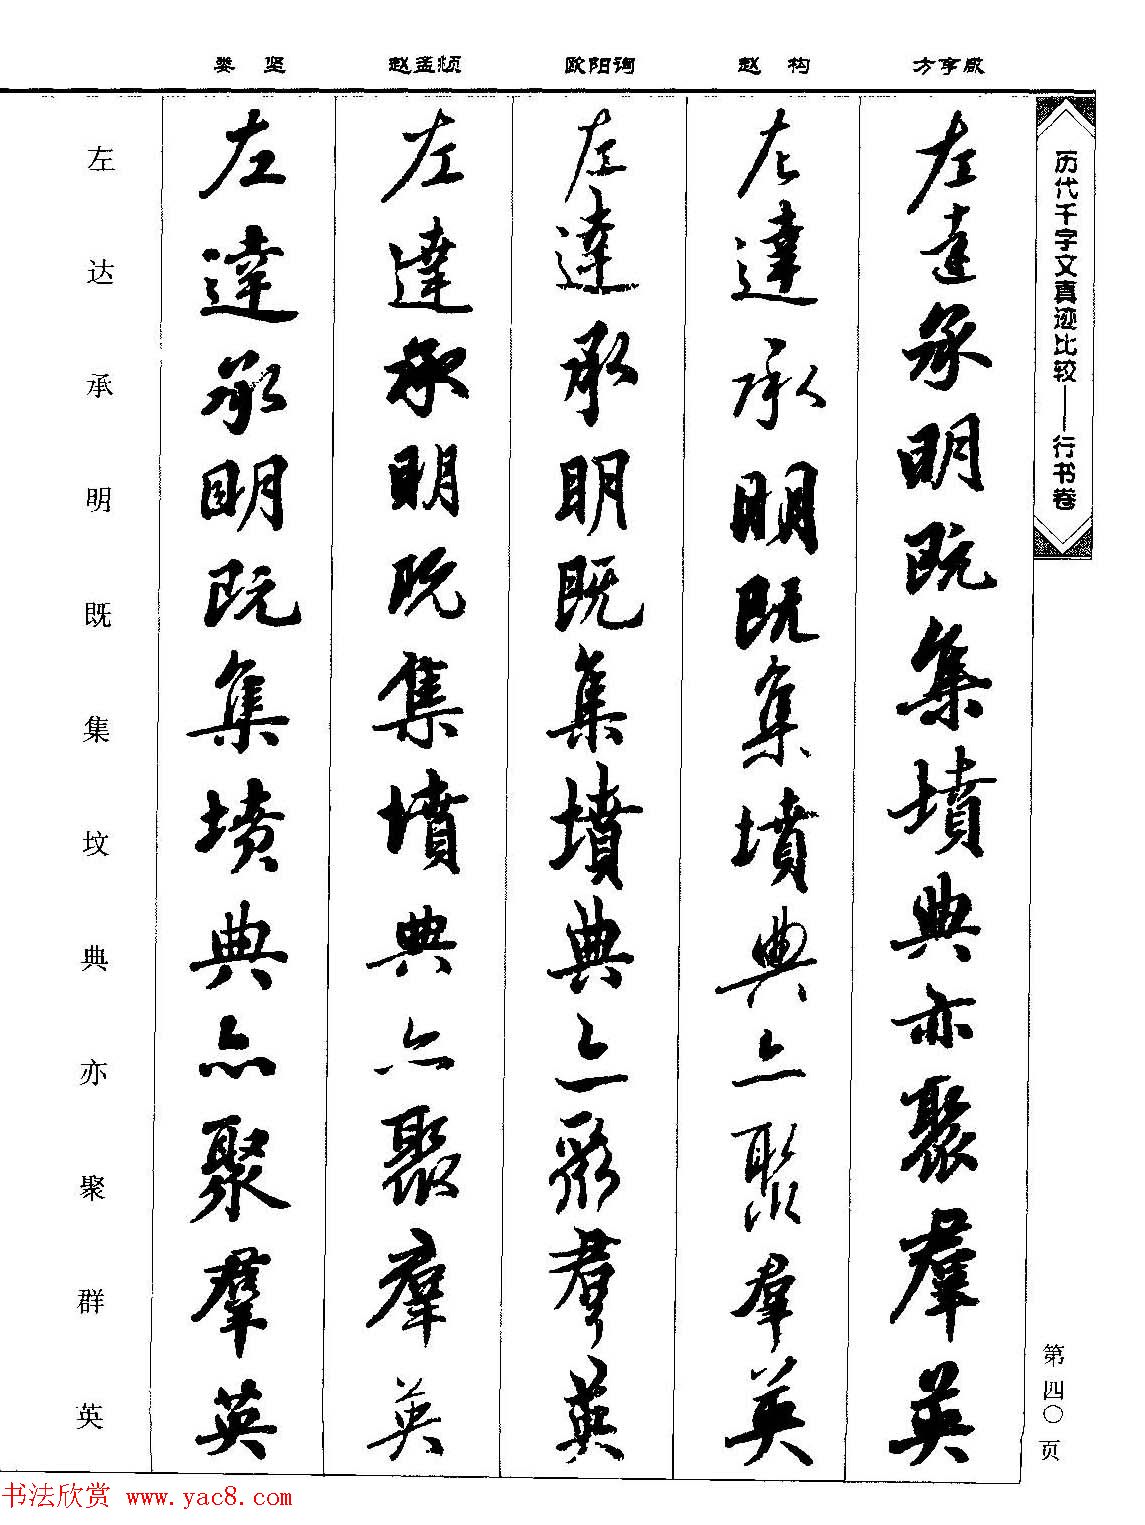 历代千字文真迹比较——行书卷
第四〇页
方亨咸
左達承明既集墳典亦聚群英
赵构
左達承明既集墳典亦聚群英
欧阳询
左達承明既集墳典亦聚群英
赵孟頫
左達承明既集墳典亦聚群英
娄坚
左達承明既集墳典亦聚群英
左达承明既集坟典亦聚群英
书法欣赏 www.yac8.com